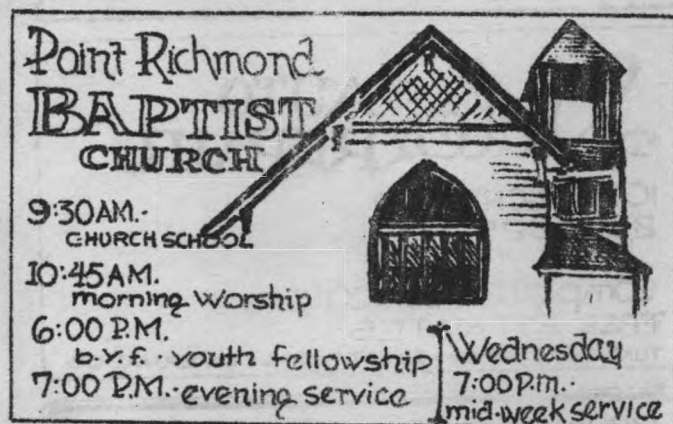 Point Richmond
BAPTIST
CHURCH
9:30 A.M.-
CHURCH SCHOOL
10:45 A.M.
morning worship
6:00 P.M.
b.y.f. - youth fellowship
7:00 P.M. - evening service
Wednesday
7:00 P.m. -
mid-week service